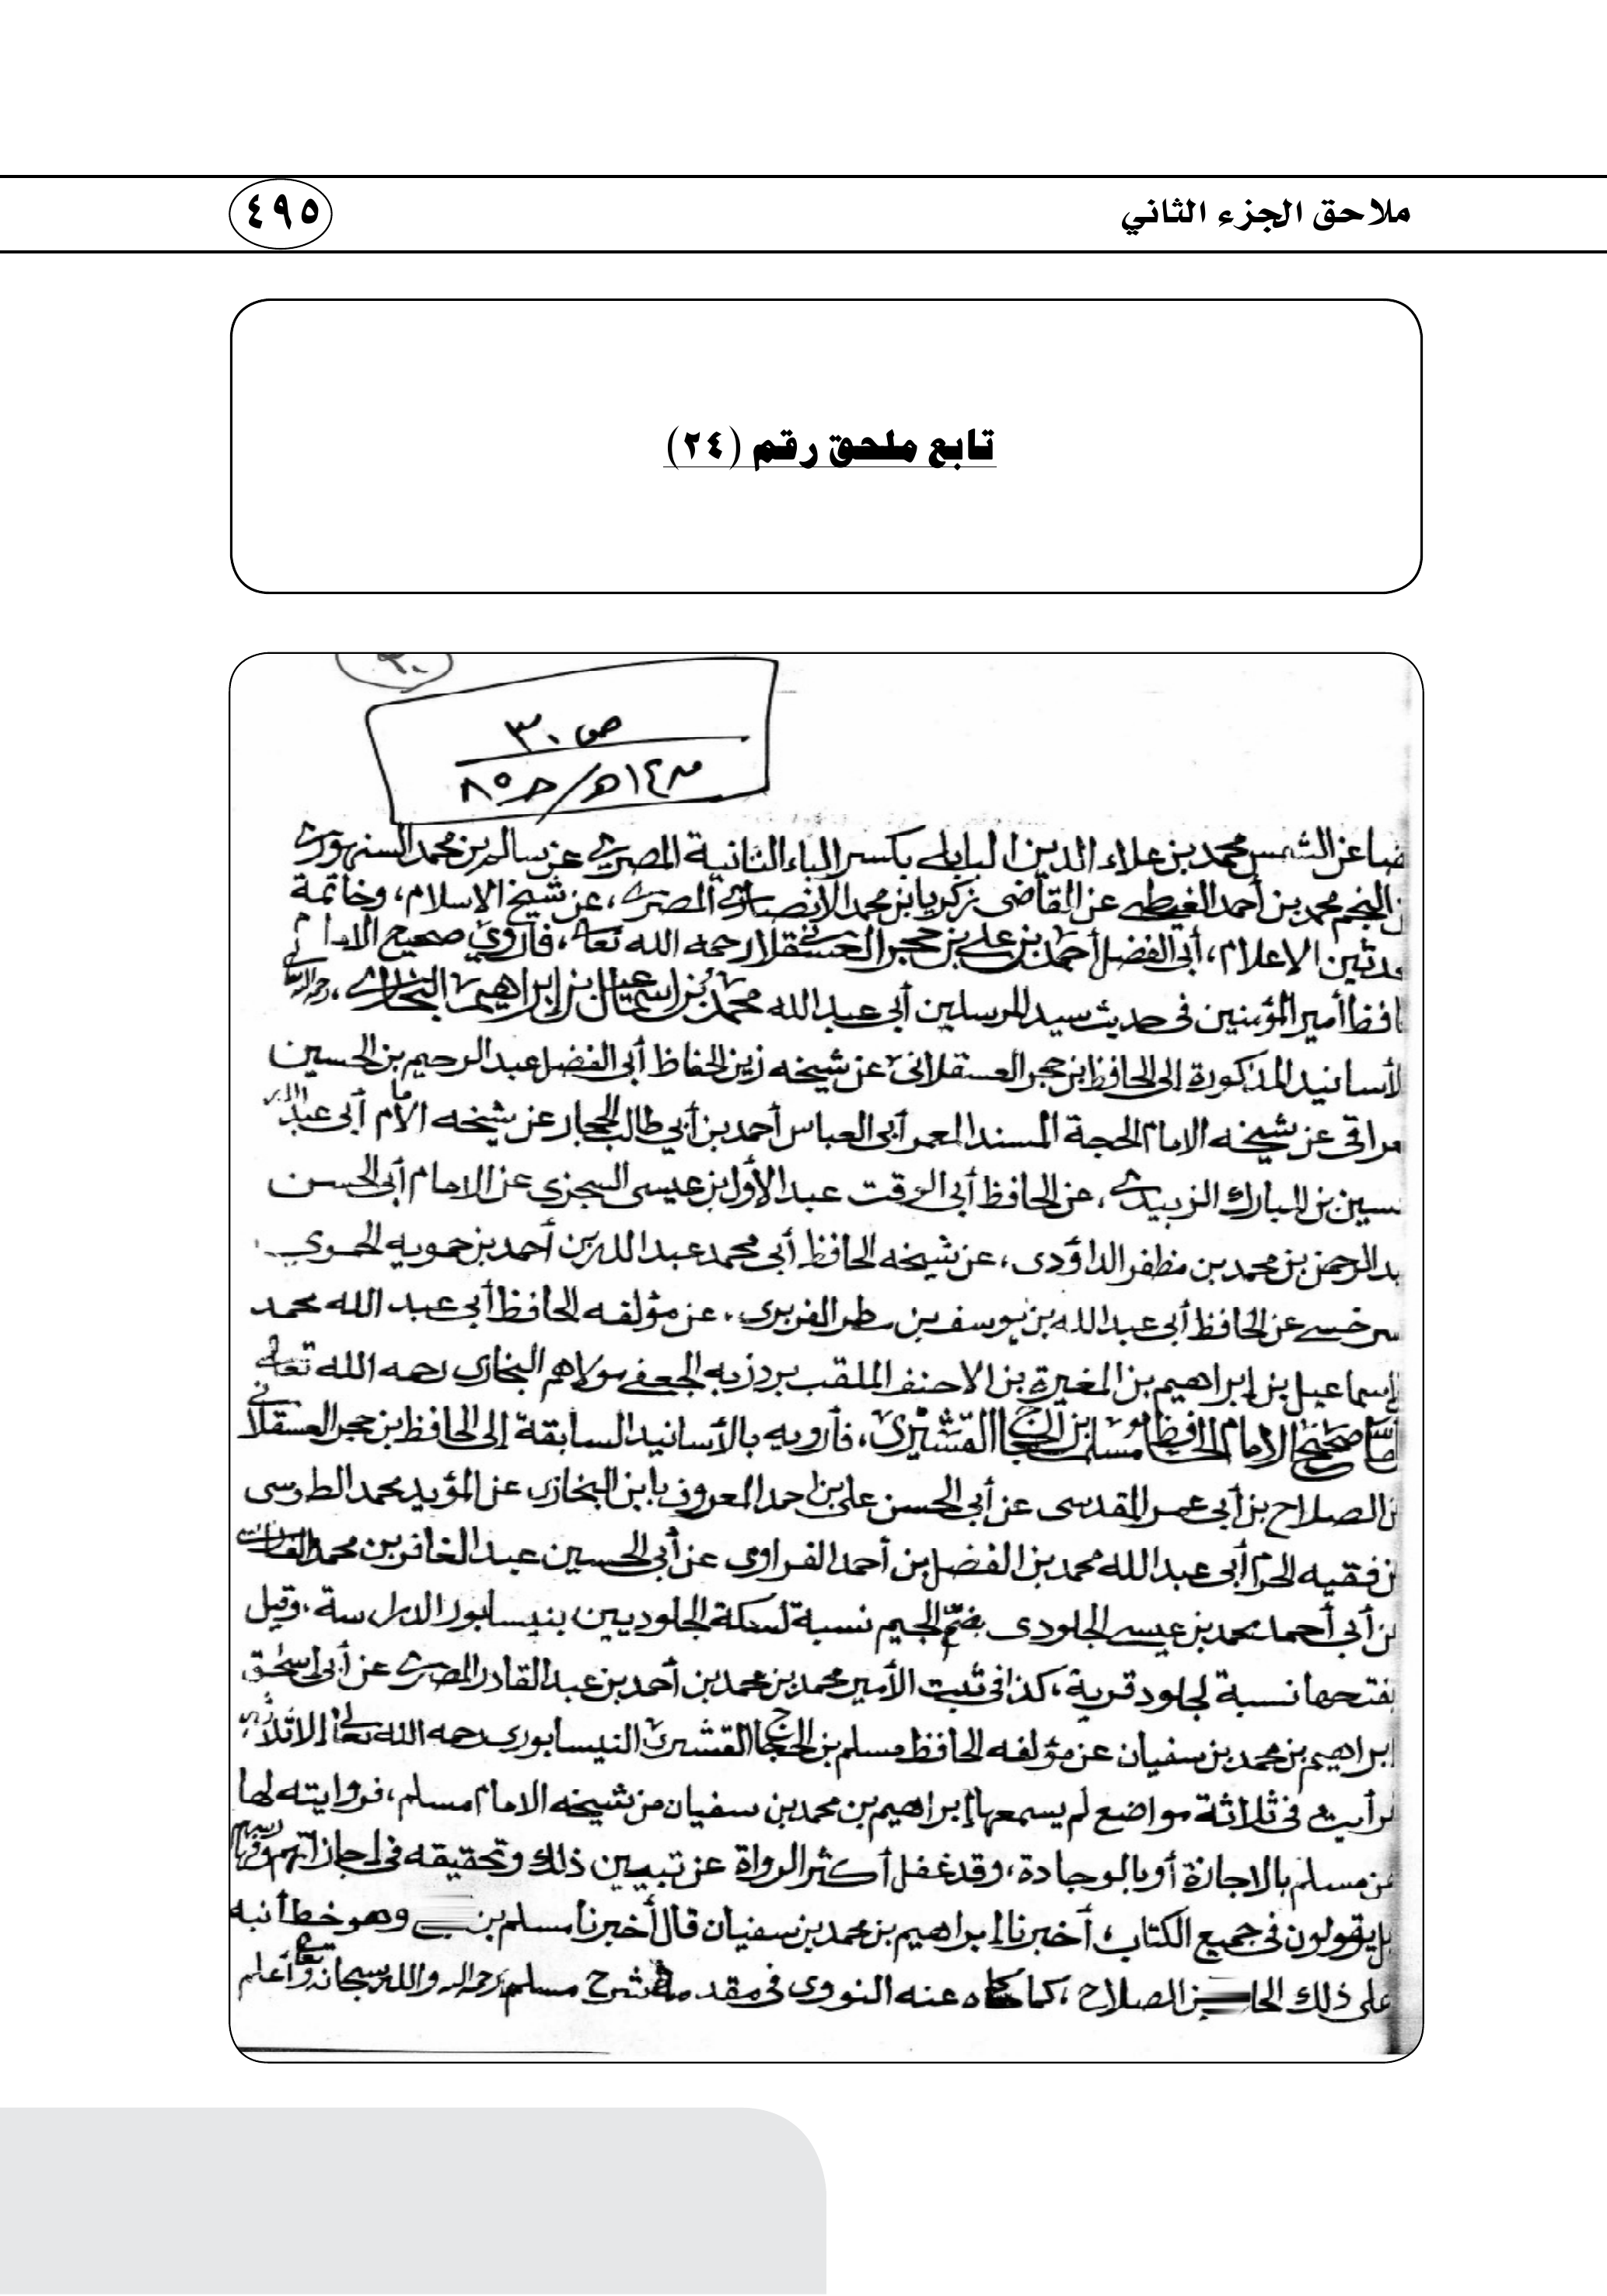 ملاحق الجزء الثاني
٤٩٥
تابع ملحق رقم (٢٤)
ص ٣٠
ضا عن الشمس محمد بن علاء الدين البابلي بكسر الباء الثانية المصري عن سالم بن محمد السنهوري
ن النجم محمد بن أحمد الغيطي عن القاضي زكريا بن محمد الأنصاري المصري، عن شيخ الاسلام، وخاتمة
حدثين الاعلام، أبي الفضل أحمد بن علي بن حجر العسقلاني رحمه الله تعالى، فأروي صحيح الامام
افظ أمير المؤمنين في حديث سيد المرسلين أبي عبد الله محمد بن إسماعيل بن إبراهيم البخاري، رحمه الله
لأسانيد المذكورة إلى الحافظ ابن حجر العسقلاني عن شيخه زين الحفاظ أبي الفضل عبد الرحيم بن الحسين
عراقي عن شيخه الامام الحجة المسند المعمر أبي العباس أحمد بن أبي طالب الحجار عن شيخه الامام أبي عبد الله
حسين بن المبارك الزبيدي، عن الحافظ أبي الوقت عبد الأول بن عيسى السجزي عن الامام أبي الحسن
بد الرحمن بن محمد بن مظفر الداؤدي، عن شيخه الحافظ أبي محمد عبد الله بن أحمد بن حمويه الحموي
سرخسي عن الحافظ أبي عبد الله بن يوسف بن مطر الفربري، عن مؤلفه الحافظ أبي عبد الله محمد
إسماعيل بن إبراهيم بن المغيرة بن الاحنف الملقب بردزبه الجعفي مولاهم البخاري رحمه الله تعالى
صحيح الامام الحافظ مسلم بن الحجاج القشيري، فأرويه بالأسانيد السابقة إلى الحافظ ابن حجر العسقلاني
ن الصلاح بن أبي عمر المقدسي عن أبي الحسن علي بن احمد المعروف بابن البخاري عن المؤيد محمد الطوسي
ن فقيه الحرم أبي عبد الله محمد بن الفضل بن أحمد الفراوي عن أبي الحسين عبد الغافر بن محمد الفارسي
ن أبي أحمد محمد بن عيسى الجلودي بضم الجيم نسبة لسكة الجلوديين بنيسابور الدراسة، وقيل
بفتحها نسبة لجلود قرية، كذا في ثبت الأمير محمد بن محمد بن أحمد بن عبد القادر المصري عن أبي إسحق
ابراهيم بن محمد بن سفيان عن مؤلفه الحافظ مسلم بن الحجاج القشيري النيسابوري رحمه الله تعالى الا ثلاثة
في ثلاثة مواضع لم يسمعها إبراهيم بن محمد بن سفيان من شيخه الامام مسلم، فروايته لها
عن مسلم بالاجازة أو بالوجادة، وقد غفل أكثر الرواة عن تبيين ذلك وتحقيقه في إجازاتهم
بل يقولون في جميع الكتاب، أخبرنا إبراهيم بن محمد بن سفيان قال أخبرنا مسلم بن وهو خطأ نبه
على ذلك الصلاح، كما حكاه عنه النووي في مقدمة شرح مسلم رحمه الله والله سبحانه وتعالى أعلم